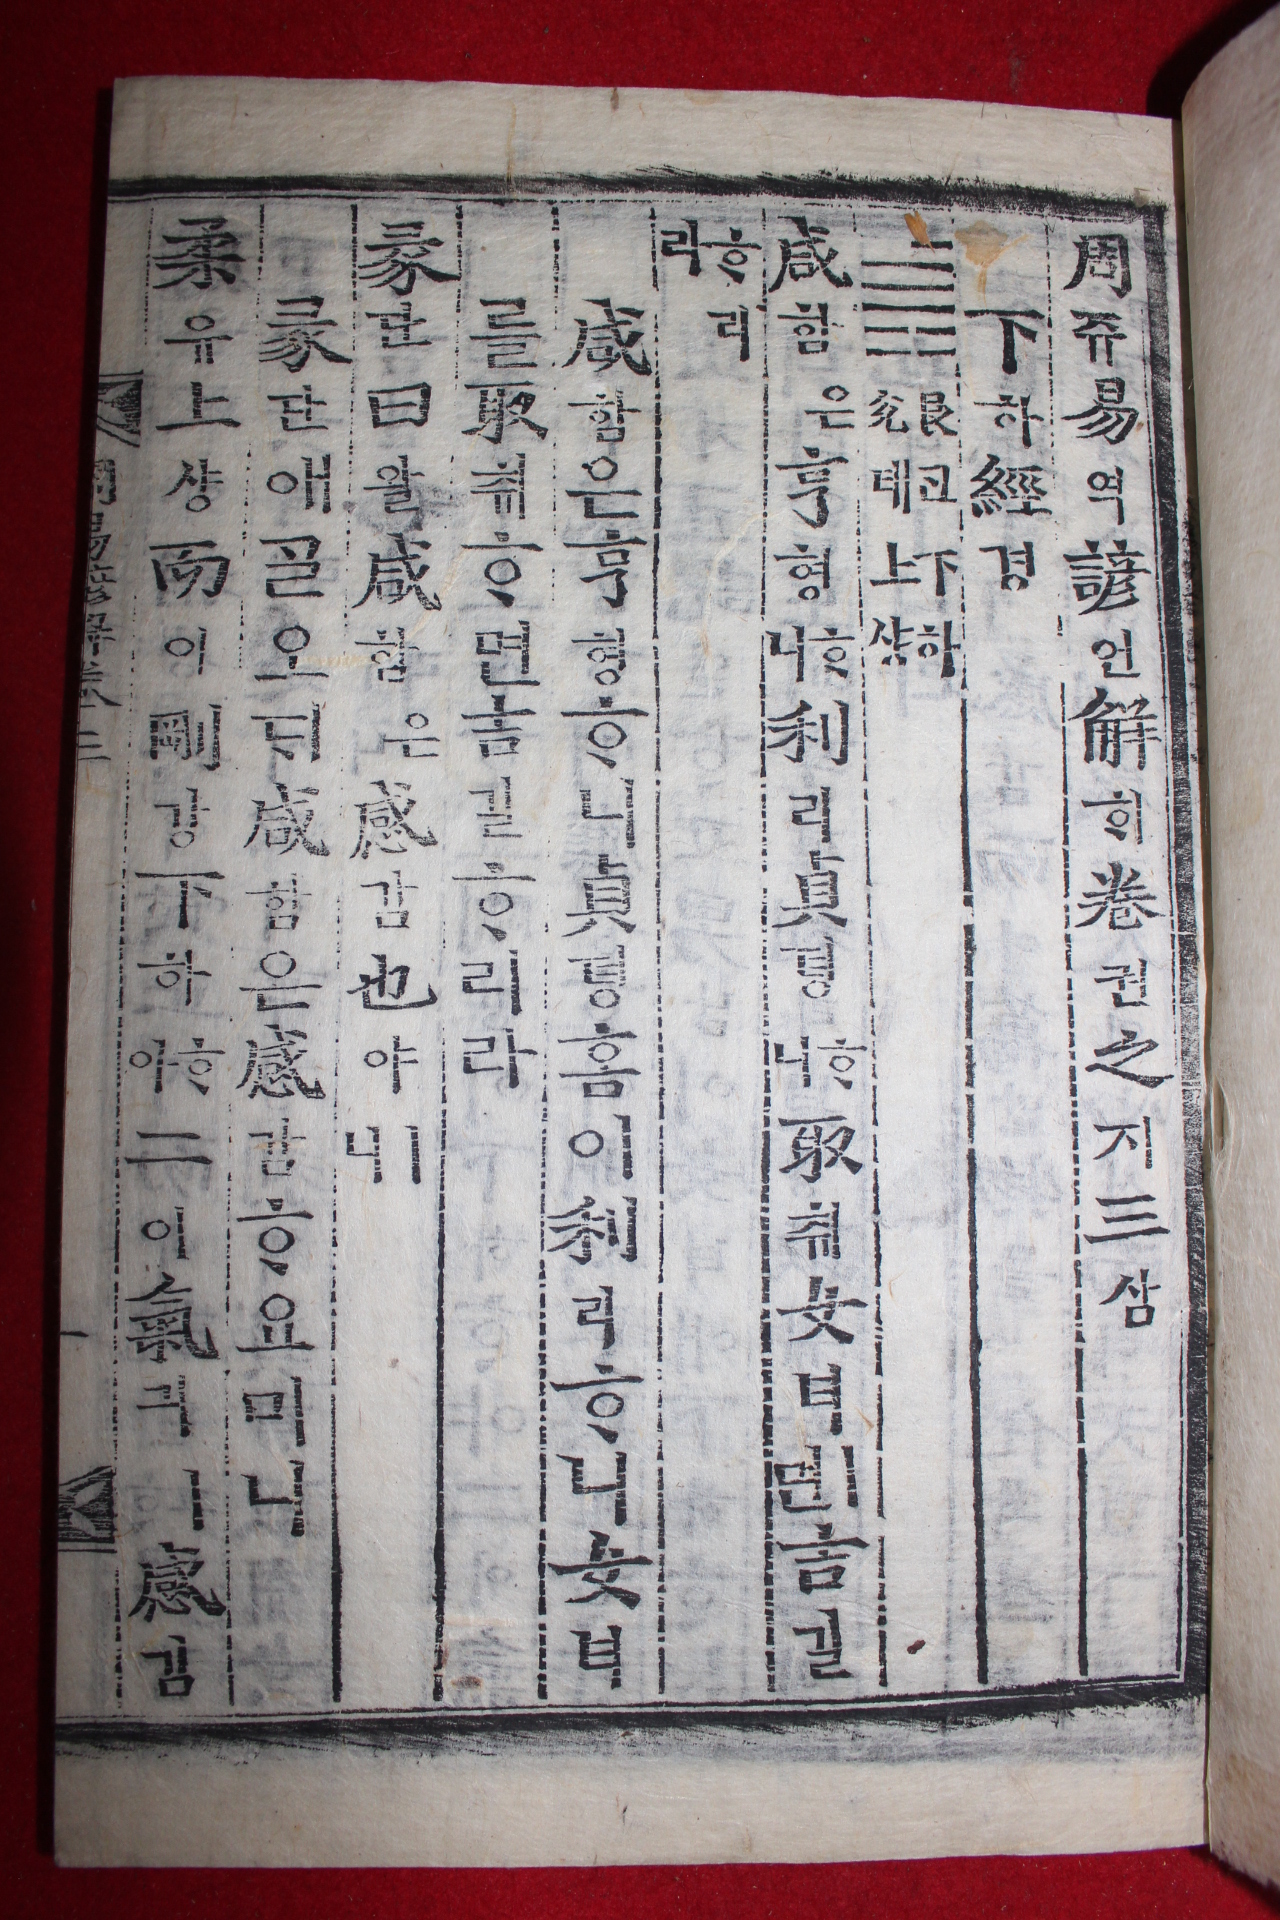 周쥬易역諺언解ᄒᆡ卷권之지三삼
下하經경
䷞艮ᄀᆞᆫ下하兌태上샹
咸함은亨형ᄒᆞ니利리貞뎡ᄒᆞ니取ᄎᆔ女녀면吉길
ᄒᆞ리라
咸함은亨형ᄒᆞ니貞뎡홈이利리ᄒᆞ니女녀
를取ᄎᆔᄒᆞ면吉길ᄒᆞ리라
彖단曰왈咸함은感감也야ㅣ니
彖단애ᄀᆞᆯ오ᄃᆡ咸함은感감ᄒᆞ요미니
柔유上샹而이剛강下하ᄒᆞ야二이氣긔ㅣ感감
周易諺解卷三 一